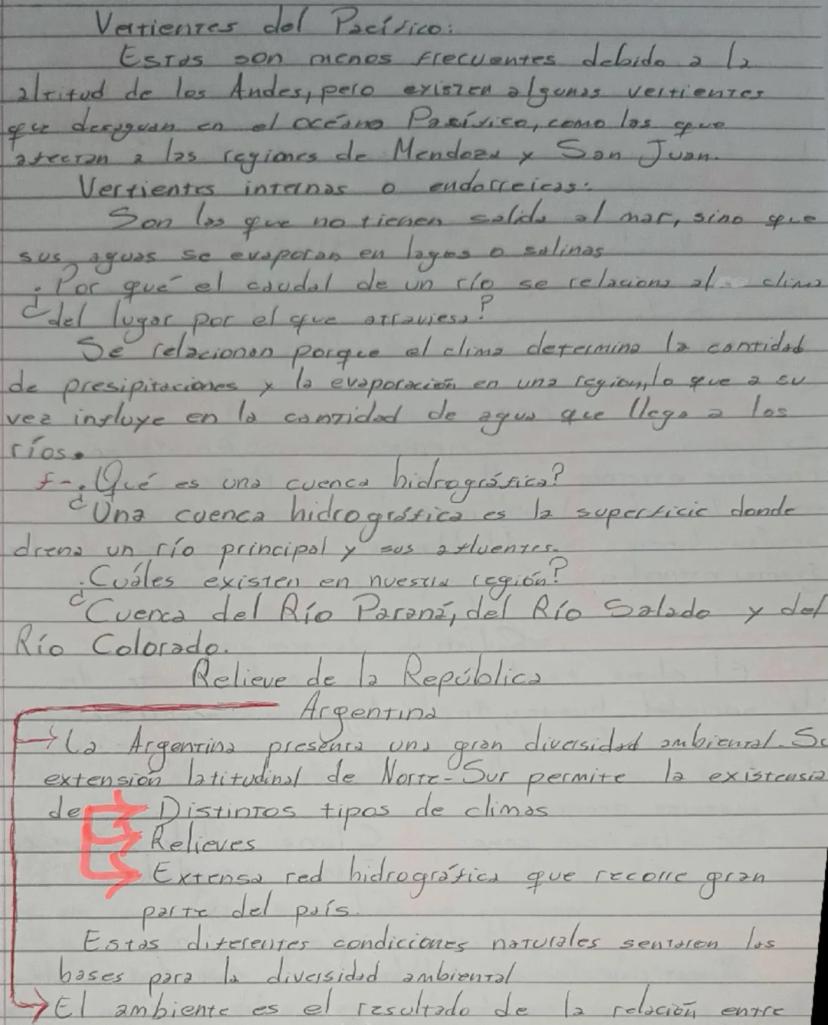 Vertientes del Pacífico:
Estas son menos frecuentes debido a la
altitud de los Andes, pero existen algunas vertientes
que desaguan en el océano Pasívico, como las que
afectan a las regiones de Mendoza y San Juan.
Vertientes internas o endorreicas:
Son las que no tienen salida al mar, sino que
sus aguas se evaporan en lagos o salinas
¿Por qué el caudal de un río se relaciona al clima
del lugar por el que atraviesa?
Se relacionan porque el clima determina la cantidad
de presipitaciones y la evaporación en una region, lo que a su
vez influye en la cantidad de agua que llega a los
ríos.
f- ¿Qué es una cuenca hidrográfica?
Una cuenca hidrográfica es la superficie donde
drena un río principal y sus afluentes.
¿Cuáles existen en nuestra región?
Cuenca del Río Paraná, del Río Salado y del
Río Colorado.
Relieve de la República
Argentina
→ La Argentina presenta una gran diversidad ambiental. Su
extensión latitudinal de Norte-Sur permite la existensia
de → Distintos tipos de climas
→ Relieves
→ Extensa red hidrográfica que recorre gran
parte del país.
Estas diferentes condiciones naturales sentaron las
bases para la diversidad ambiental
→ El ambiente es el resultado de la relación entre